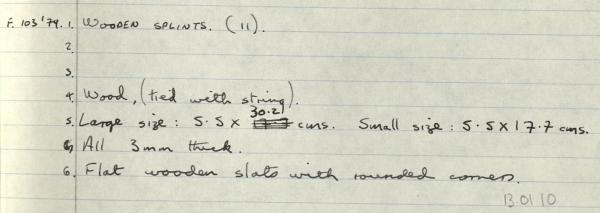 F. 103'74. 1. WOODEN SPLINTS. (11).
2.
3.
4. Wood, (tied with string).
30.2
5. Large size : 5.5 x cms. Small size : 5.5 x 17.7 cms.
All 3mm thick.
6. Flat wooden slats with rounded corners.
13.01 10